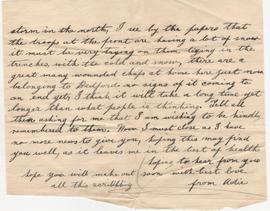 storm in the north, I see by the papers that
the troops at the front are having a lot of snow
it must be very trying on them lying in the
trenches, with the cold and snow, there are a
great many wounded chaps at home here just now
belonging to Bedford no signs of it coming to
an end yet, I think it will take a long time yet
longer than what people is thinking. Tell all
them asking for me that I am wishing to be kindly
remembered to them. Now I must close as I have
no more news to give you, hoping this may find
you well, as it leaves me in the best of health
hoping to hear from you
hope you will make out soon with best love
all this scribble from